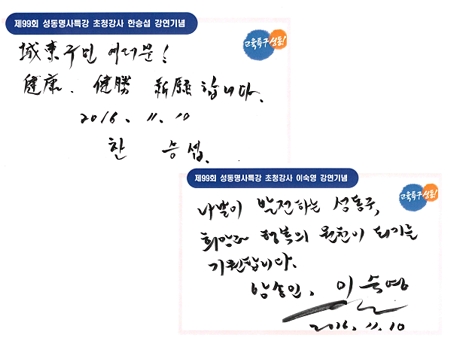 제99회 성동명사특강 초청강사 한승섭 강연기념
교육특구 성동!
城東구민 여러분!
健康, 健勝 祈願합니다.
2016. 11. 10
한 승섭.
제99회 성동명사특강 초청강사 이숙영 강연기념
교육특구 성동!
나날이 발전하는 성동구,
희망과 행복의 원천이 되기를
기원합니다.
방송인, 이숙영
2016. 11. 10